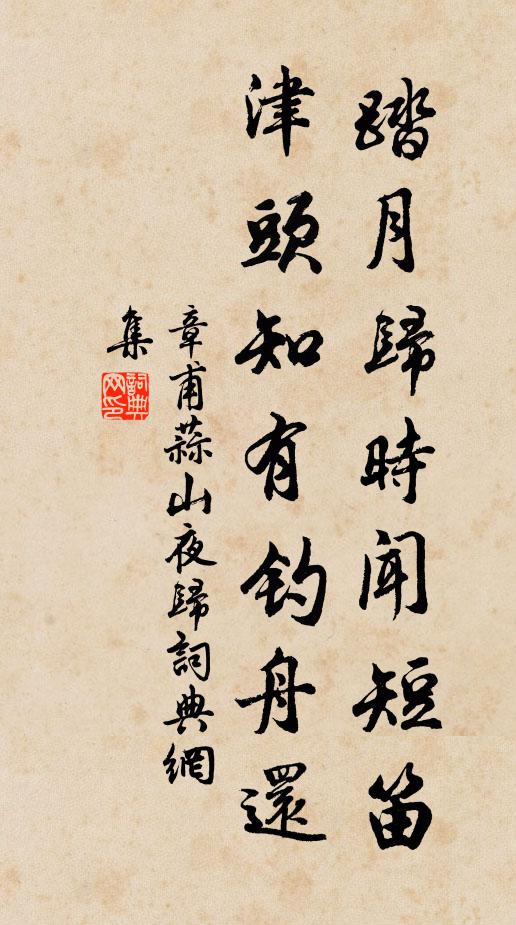 踏月歸時聞短笛
津頭知有釣舟還
章甫蒜山夜歸詞典網
集
詞典
网印